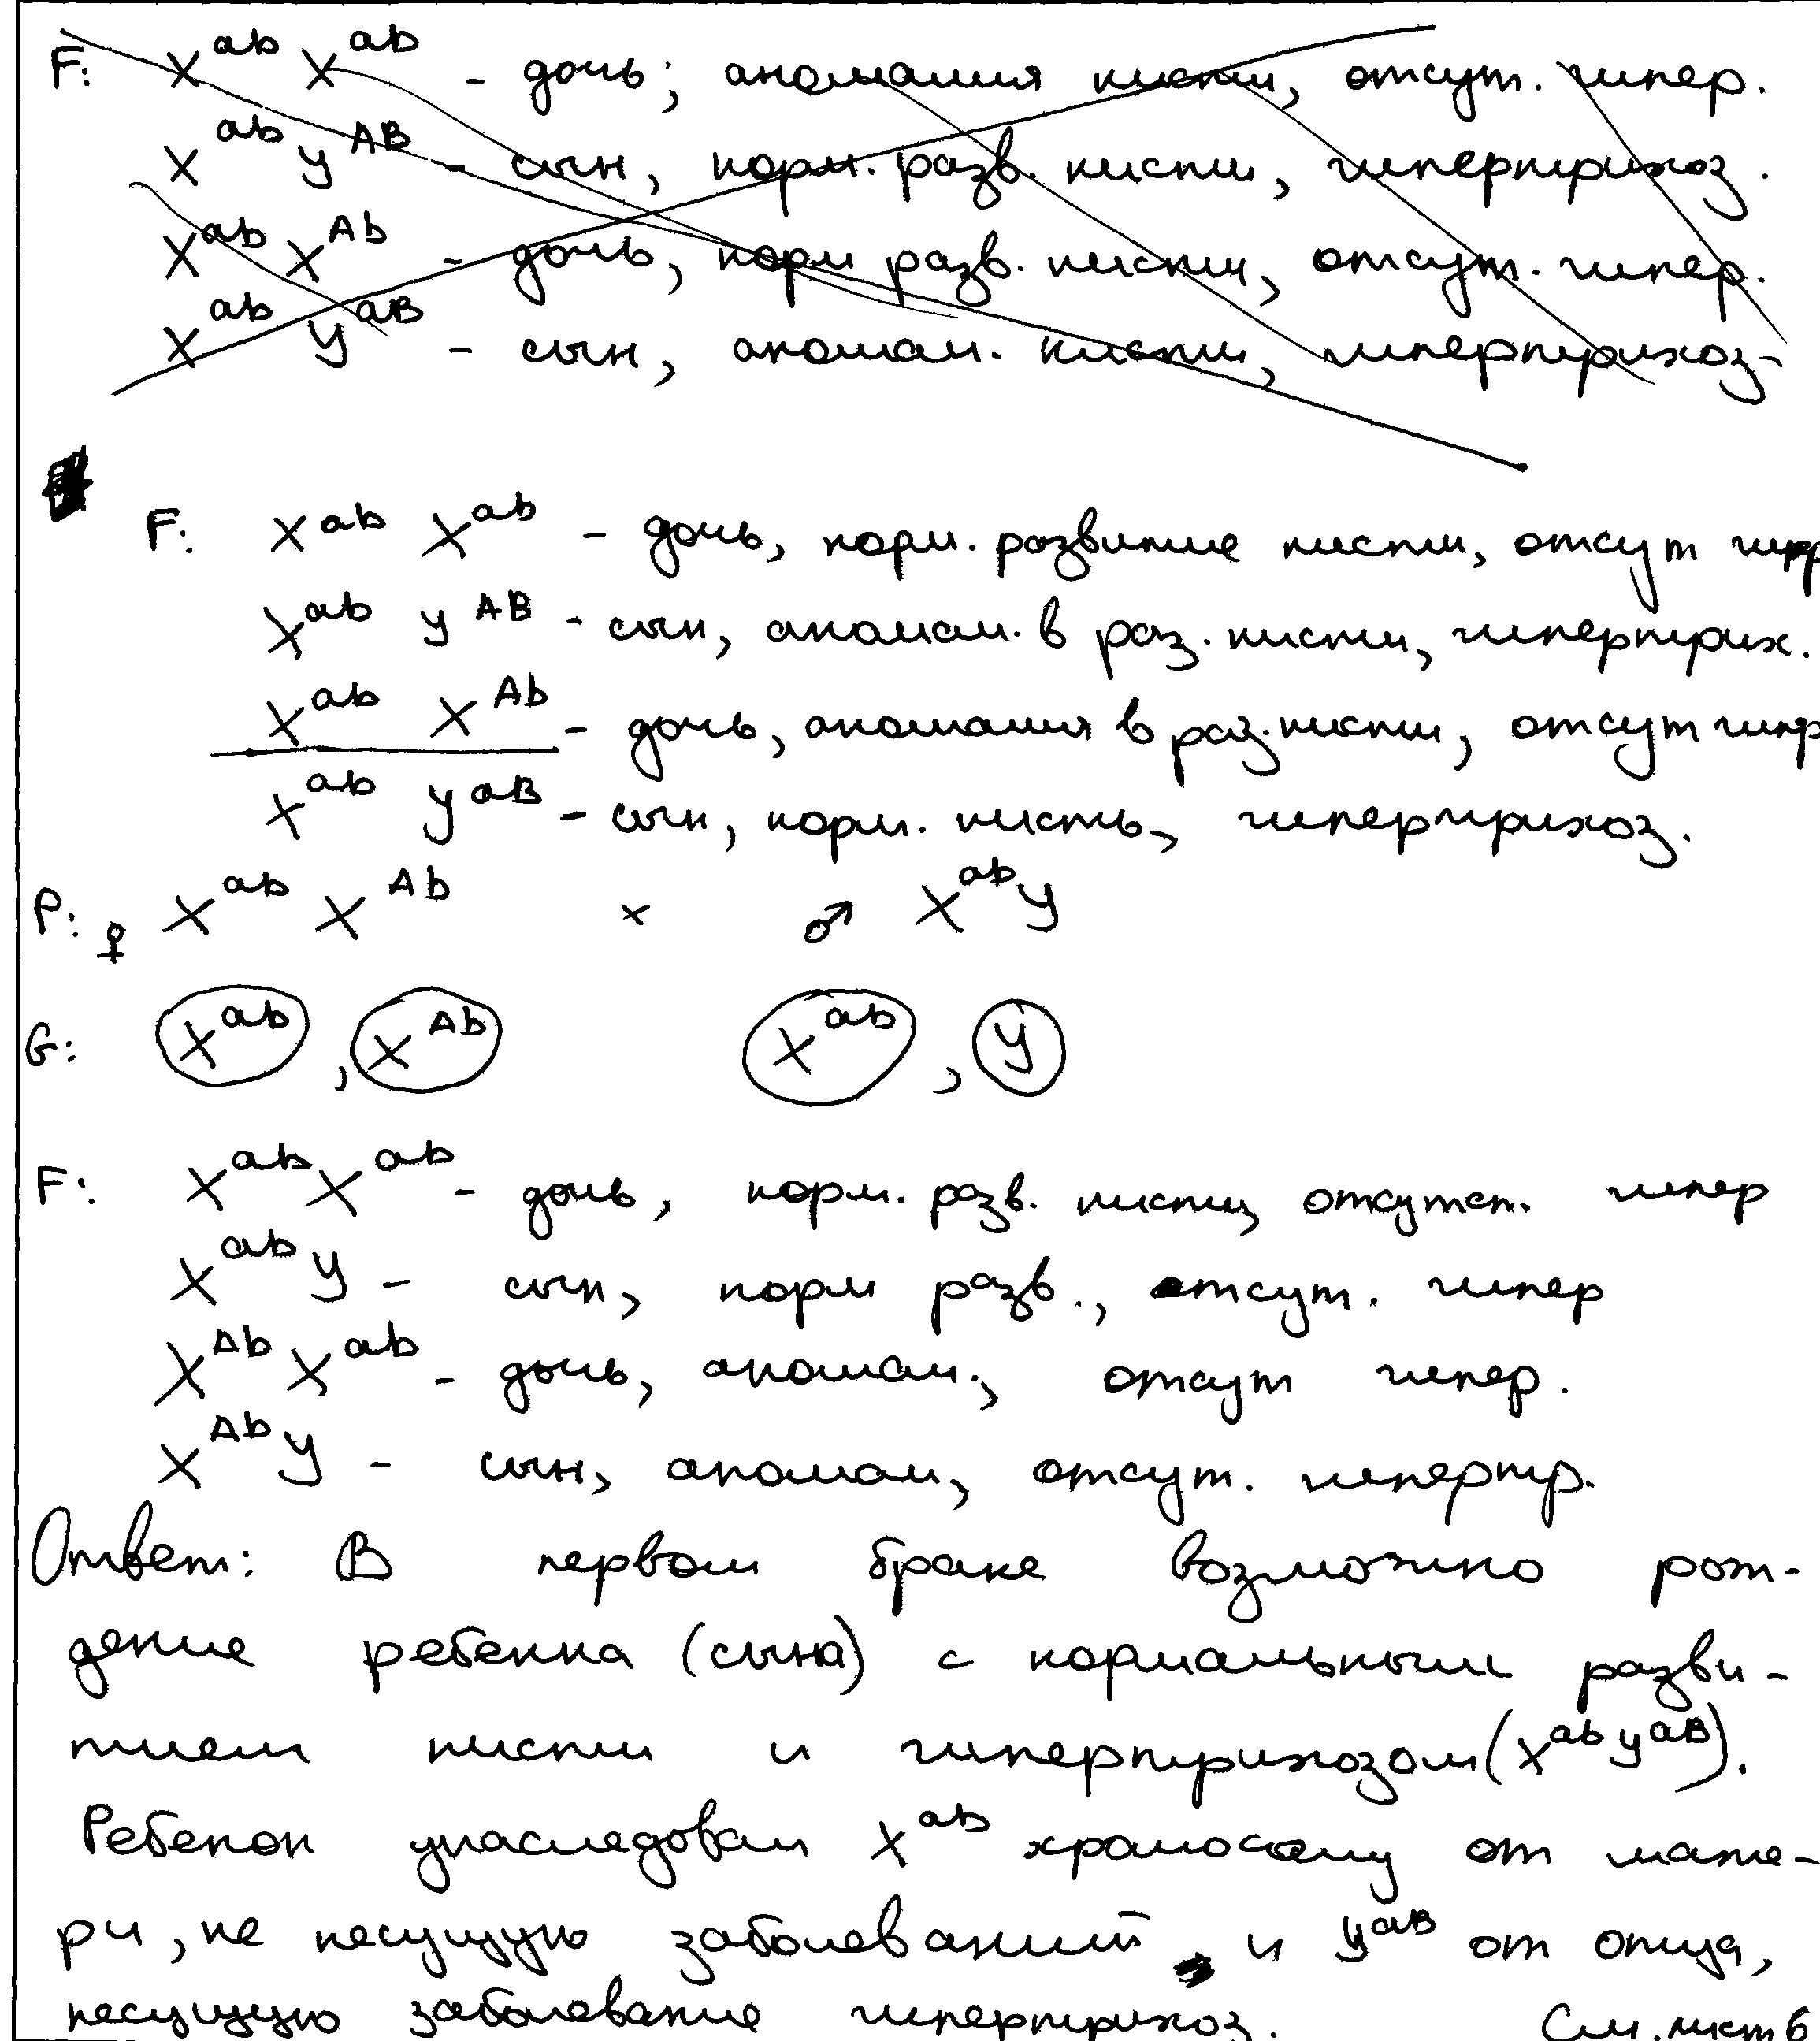 F: X^ab X^ab - дочь; аномалия кисти, отсут. гипер.
X^ab У^AB - сын, норм. разв. кисти, гипертрихоз.
X^ab X^Ab - дочь, норм разв. кисти, отсут. гипер.
X^ab У^aB - сын, аномал. кисти, гипертрихоз-
F: X^ab X^ab - дочь, норм. развитие кисти, отсут гипр
X^ab У^AB - сын, аномал. в раз. кисти, гипертрих.
X^ab X^Ab - дочь, аномалия в раз. кисти, отсут гипр
X^ab У^aB - сын, норм. кисть, гипертрихоз.
P: ♀ X^ab X^Ab × ♂ X^ab У
G: X^ab, X^Ab X^ab, У
F: X^ab X^ab - дочь, норм. разв. кисти, отсутст. гипер
X^ab У - сын, норм разв., отсут. гипер
X^Ab X^ab - дочь, аномал., отсут гипер.
X^Ab У - сын, аномал, отсут. гипертр.
Ответ: В первом браке возможно рож-
дение ребенка (сына) с нормальным разви-
тием кисти и гипертрихозом (X^ab У^aB).
Ребенок унаследовал X^ab хромосому от мате-
ри, не несущую заболеваний и У^aB от отца,
несущую заболевание гипертрихоз. См. лист 6